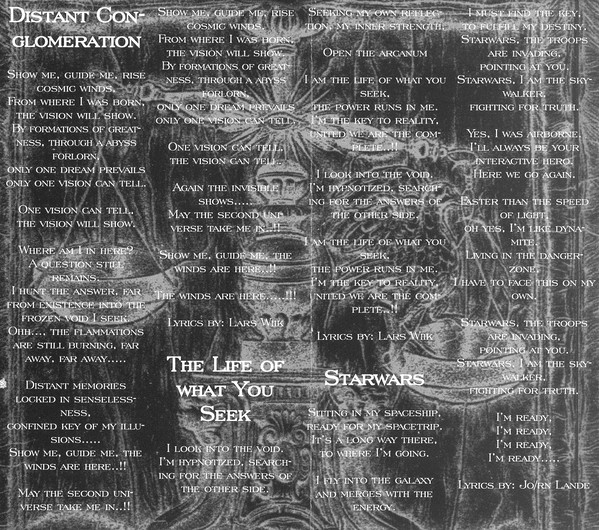 DISTANT CON-
GLOMERATION
SHOW ME, GUIDE ME, RISE
COSMIC WINDS,
FROM WHERE I WAS BORN,
THE VISION WILL SHOW.
BY FORMATIONS OF GREAT-
NESS, THROUGH A ABYSS
FORLORN,
ONLY ONE DREAM PREVAILS
ONLY ONE VISION CAN TELL.
ONE VISION CAN TELL,
THE VISION WILL SHOW.
WHERE AM I IN HERE?
A QUESTION STILL
REMAINS...
I HUNT THE ANSWER, FAR
FROM EXISTENCE INTO THE
FROZEN VOID I SEEK.
OHH..., THE FLAMMATIONS
ARE STILL BURNING, FAR
AWAY, FAR AWAY.....
DISTANT MEMORIES
LOCKED IN SENSELESS-
NESS,
CONFINED KEY OF MY ILLU-
SIONS.....
SHOW ME, GUIDE ME, THE
WINDS ARE HERE..!!
MAY THE SECOND UNI-
VERSE TAKE ME IN..!!
SHOW ME, GUIDE ME, RISE
COSMIC WINDS,
FROM WHERE I WAS BORN,
THE VISION WILL SHOW.
BY FORMATIONS OF GREAT-
NESS, THROUGH A ABYSS
FORLORN,
ONLY ONE DREAM PREVAILS
ONLY ONE VISION CAN TELL...
ONE VISION CAN TELL,
THE VISION CAN TELL.
AGAIN THE INVISIBLE
SHOWS.....
MAY THE SECOND UNI-
VERSE TAKE ME IN..!!
SHOW ME, GUIDE ME, THE
WINDS ARE HERE..!!
THE WINDS ARE HERE.....!!!
LYRICS BY: LARS WIIK
THE LIFE OF
WHAT YOU
SEEK
I LOOK INTO THE VOID.
I'M HYPNOTIZED, SEARCH-
ING FOR THE ANSWERS OF
THE OTHER SIDE.
SEEKING MY OWN REFLEC-
TION, MY INNER STRENGTH.
OPEN THE ARCANUM
I AM THE LIFE OF WHAT YOU
SEEK,
THE POWER RUNS IN ME.
I'M THE KEY TO REALITY,
UNITED WE ARE THE COM-
PLETE..!!
I LOOK INTO THE VOID.
I'M HYPNOTIZED, SEARCH-
ING FOR THE ANSWERS OF
THE OTHER SIDE.
I AM THE LIFE OF WHAT YOU
SEEK,
THE POWER RUNS IN ME.
I'M THE KEY TO REALITY,
UNITED WE ARE THE COM-
PLETE..!!
LYRICS BY: LARS WIIK
STARWARS
SITTING IN MY SPACESHIP,
READY FOR MY SPACETRIP.
IT'S A LONG WAY THERE,
TO WHERE I'M GOING.
I FLY INTO THE GALAXY
AND MERGES WITH THE
ENERGY.
I MUST FIND THE KEY,
TO FULFILL MY DESTINY.
STARWARS, THE TROOPS
ARE INVADING,
POINTING AT YOU.
STARWARS, I AM THE SKY-
WALKER,
FIGHTING FOR TRUTH.
YES, I WAS AIRBORNE,
I'LL ALWAYS BE YOUR
INTERACTIVE HERO.
HERE WE GO AGAIN.
FASTER THAN THE SPEED
OF LIGHT,
OH YES, I'M LIKE DYNA-
MITE.
LIVING IN THE DANGER-
ZONE,
I HAVE TO FACE THIS ON MY
OWN.
STARWARS, THE TROOPS
ARE INVADING,
POINTING AT YOU.
STARWARS, I AM THE SKY-
WALKER,
FIGHTING FOR TRUTH.
I'M READY,
I'M READY,
I'M READY,
I'M READY.....
LYRICS BY: JO/RN LANDE